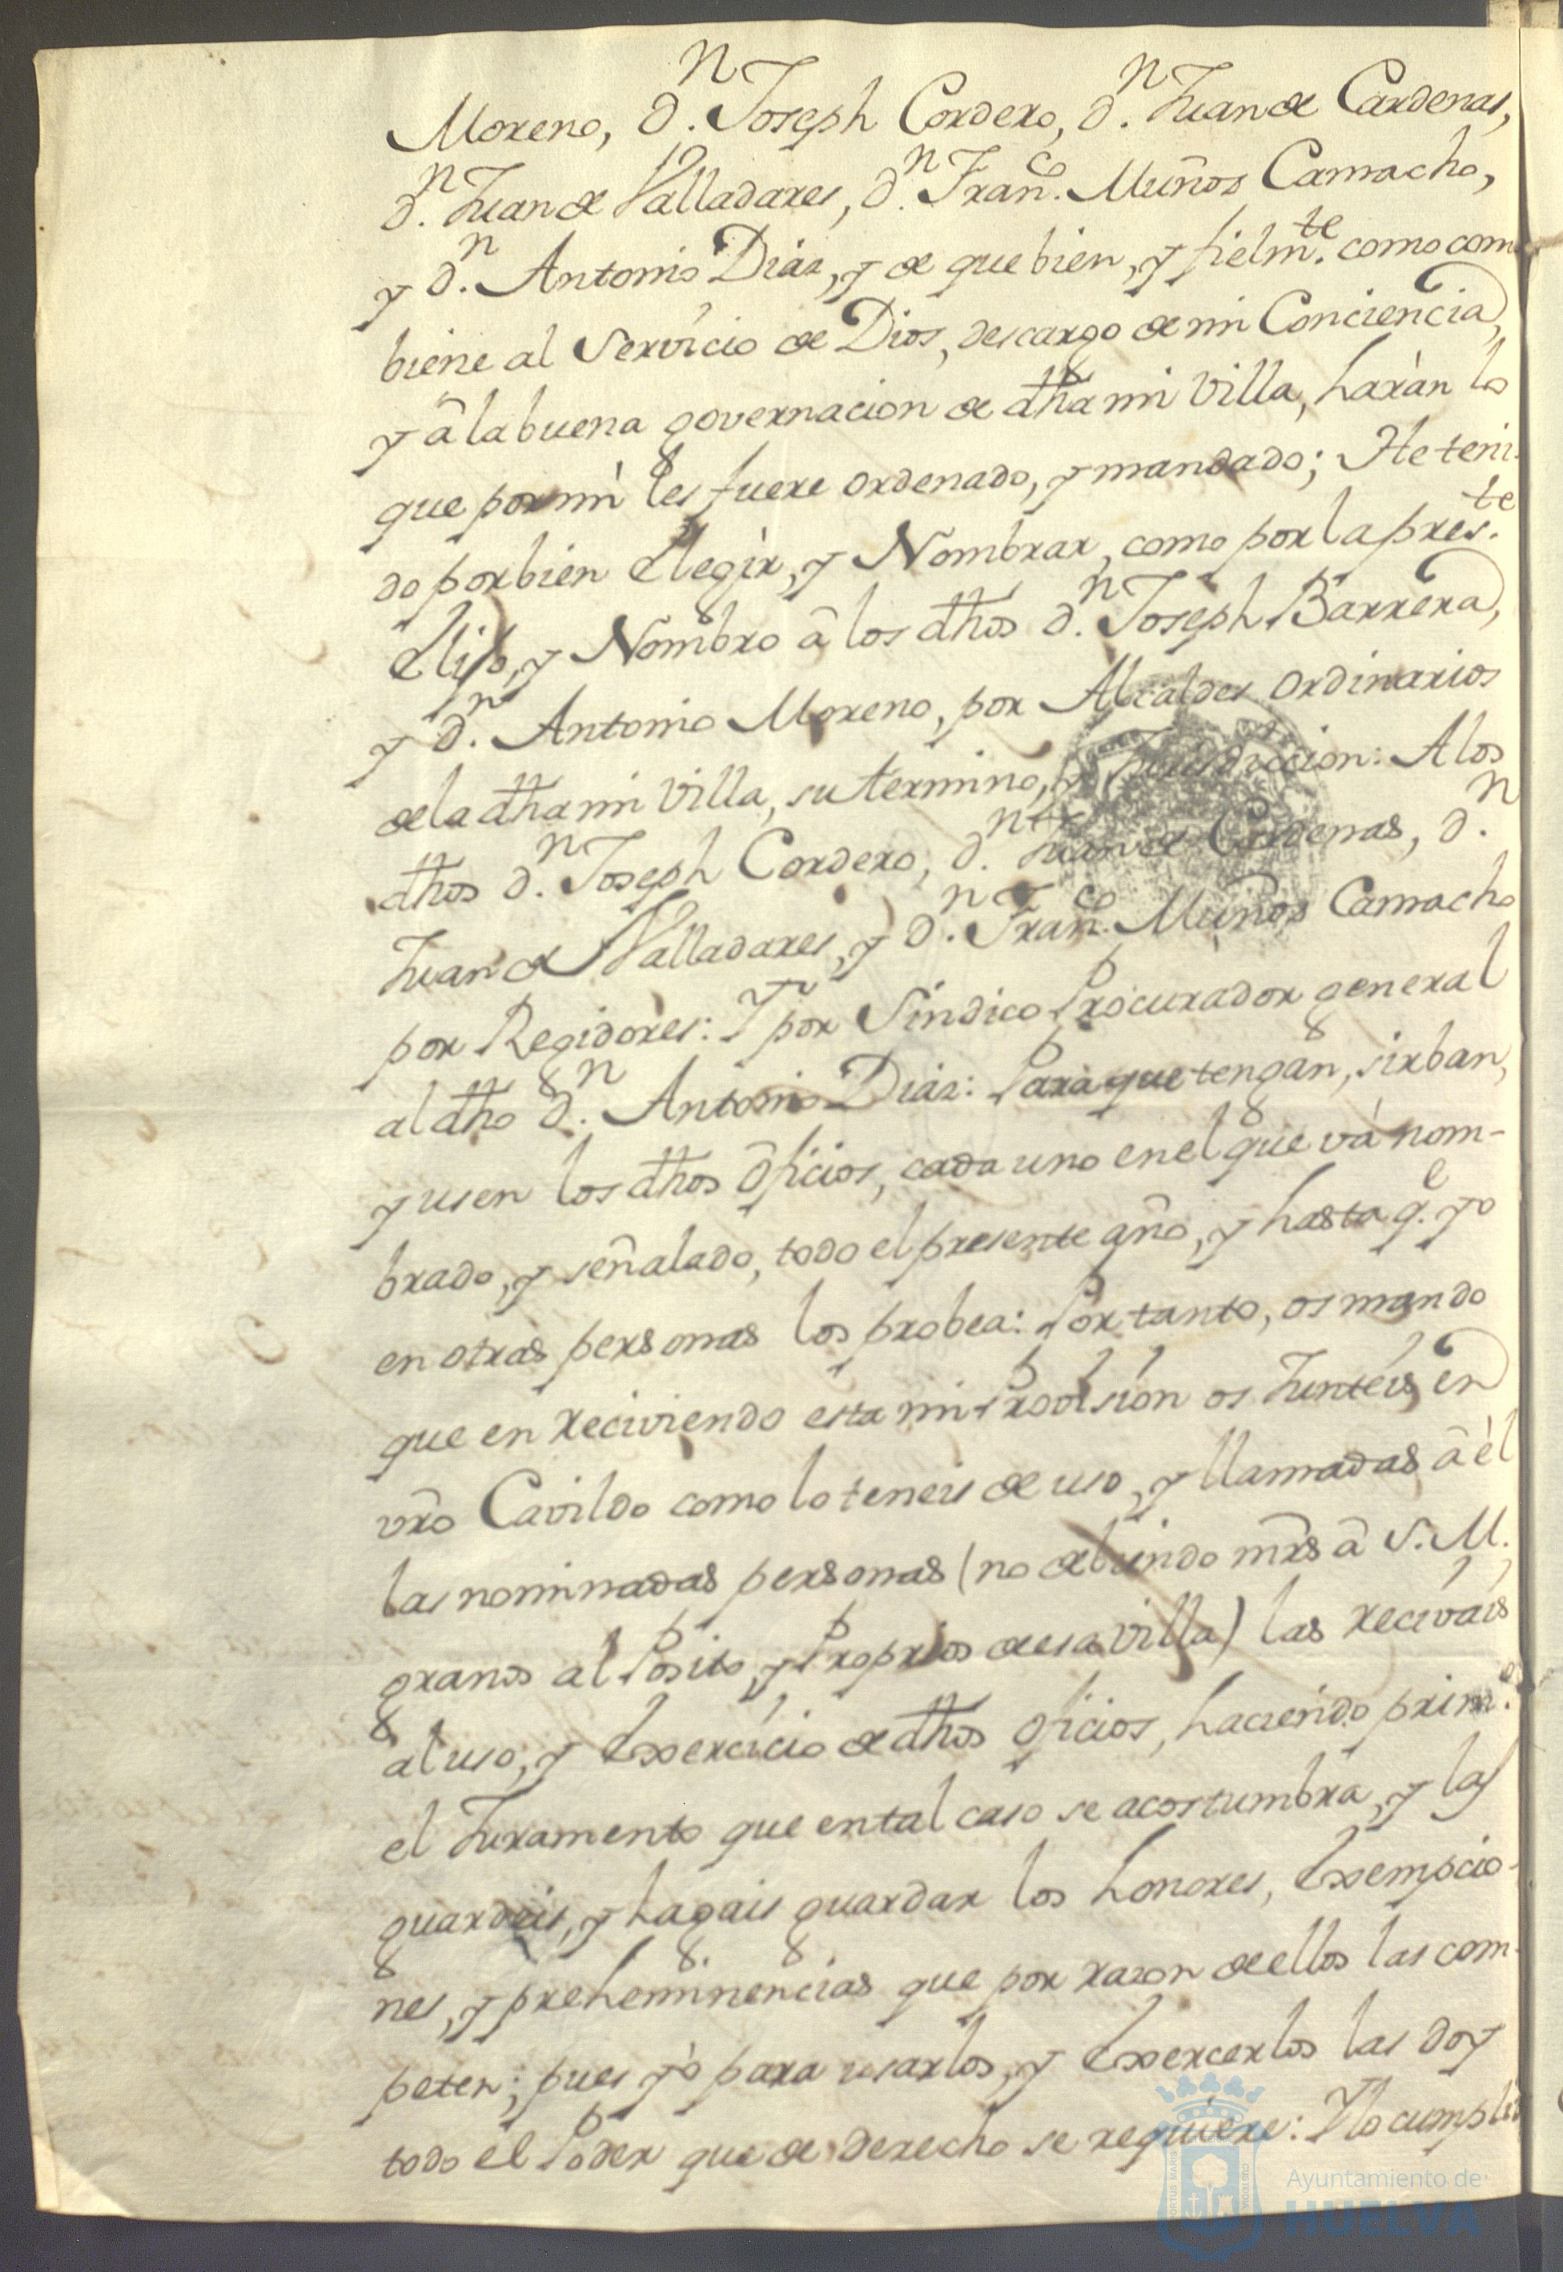 Moreno, d.n Joseph Cordero, d.n Juan de Cardenas,
d.n Juan de Valladares, d.n Fran.co Muños Camacho,
y d.n Antonio Diaz, y de que bien, y fielm.te como com
biene al Servicio de Dios, descargo de mi Conciencia,
y â la buena governacion de dha mi Villa, haràn lo
que por mi les fuere ordenado, y mandado; He teni-
do por bien Elegir, y Nombrar, como por la pres.te
Elijo, y Nombro â los dhos d.n Joseph Barrera,
y d.n Antonio Moreno, por Alcaldes ordinarios
de la dha mi Villa, su termino, y Jurisdiccion: A los
dhos d.n Joseph Cordero, d.n Juan de Cardenas, d.n
Juan de Valladares, y d.n Fran.co Muños Camacho
por Regidores: Y por Sindico Procurador general
al dho d.n Antonio Diaz: Para que tengan, sirban,
y usen los dhos oficios, cada uno en el que vá nom-
brado, y señalado, todo el presente año, y hasta q.e yo
en otras personas los probea: Por tanto, os mando
que en reciviendo esta mi Provision os Junteis en
vro Cavildo como lo teneis de uso, y llamadas â èl
las nominadas personas (no debiendo mrs â S. M.
granos al Posito, y Proprios de esa villa) las recivais
al uso, y Exercicio de dhos oficios, haciendo prim.o
el Juramento que en tal caso se acostumbra, y las
guardeis, y hagais guardar los honores, Exempcio-
nes, y preheminencias que por razon de ellos las com-
peten; pues yò para usarlos, y Exercerlos las doy
todo el Poder que de derecho se requiere: Y lo cumpli
Ayuntamiento de
HUELVA